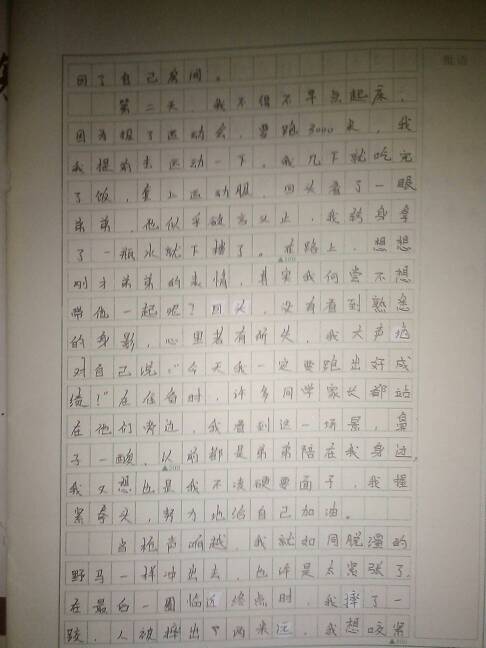 批语
回了自己房间。
第二天,我不得不早点起床,
因为报了运动会,要跑3000米,我
我提前去运动一下。我几下就吃完
了饭,套上运动服,回头看了一眼
弟弟,他似乎欲言又止,我转身拿
了一瓶水就下楼了。在路上,想想
刚才弟弟的表情,其实我何尝不想
带他一起呢?回头,没有看到熟悉
的身影,心里若有所失,我大声地
对自己说:“今天我一定要跑出好成
绩!”在准备时,许多同学家长都站
在他们旁边,我看到这一场景,鼻
子一酸,以前都是弟弟陪在我身边,
我又想也是我不该硬要面子,我握
紧拳头,努力地给自己加油。
当枪声响起,我就如同脱缰的
野马一样冲出去,也许是太紧张了,
在最后一圈临近终点时,我摔了一
跤,人被摔出了两米远,我想咬紧